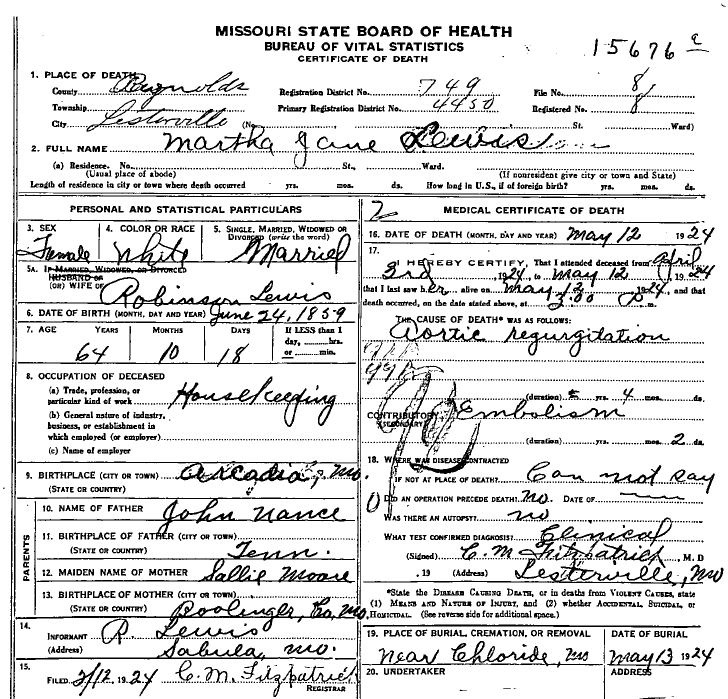 MISSOURI STATE BOARD OF HEALTH
BUREAU OF VITAL STATISTICS
CERTIFICATE OF DEATH
15676
1. PLACE OF DEATH
County Reynolds Registration District No. 749 File No. 8
Township Primary Registration District No. 4450 Registered No. 8
City Lesterville (No. St. Ward)
2. FULL NAME Martha Jane Lewis
(a) Residence. No. St., Ward.
(Usual place of abode) (If nonresident give city or town and State)
Length of residence in city or town where death occurred yrs. mos. ds. How long in U.S., if of foreign birth? yrs. mos. ds.
PERSONAL AND STATISTICAL PARTICULARS
3. SEX 4. COLOR OR RACE 5. SINGLE, MARRIED, WIDOWED OR DIVORCED (write the word)
Female White Married
5A. IF MARRIED, WIDOWED, OR DIVORCED
HUSBAND OF
(OR) WIFE OF Robinson Lewis
6. DATE OF BIRTH (MONTH, DAY AND YEAR) June 24, 1859
7. AGE YEARS MONTHS DAYS If LESS than 1 day, hrs. or min.
64 10 18
8. OCCUPATION OF DECEASED
(a) Trade, profession, or particular kind of work Housekeeping
(b) General nature of industry, business, or establishment in which employed (or employer)
(c) Name of employer
9. BIRTHPLACE (CITY OR TOWN) Arcadia, Mo.
(STATE OR COUNTRY)
PARENTS
10. NAME OF FATHER John Nance
11. BIRTHPLACE OF FATHER (CITY OR TOWN)
(STATE OR COUNTRY) Tenn.
12. MAIDEN NAME OF MOTHER Sallie Moore
13. BIRTHPLACE OF MOTHER (CITY OR TOWN)
(STATE OR COUNTRY) Boolinger, Co, Mo.
14. INFORMANT R. Lewis
(Address) Sabula, Mo.
15. FILED 12, 1924 C. M. Fitzpatrick
REGISTRAR
2 MEDICAL CERTIFICATE OF DEATH
16. DATE OF DEATH (MONTH, DAY AND YEAR) May 12 1924
17. I HEREBY CERTIFY, That I attended deceased from April
3rd, 1924, to May 12, 1924
that I last saw her alive on May 12, 1924, and that
death occurred, on the date stated above, at 3:00 P m.
THE CAUSE OF DEATH* WAS AS FOLLOWS:
Aortic regurgitation
(duration) yrs. 4 mos. ds.
CONTRIBUTORY Embolism
(SECONDARY)
(duration) yrs. mos. 2 ds.
18. WHERE WAS DISEASE CONTRACTED
IF NOT AT PLACE OF DEATH? Can not say
DID AN OPERATION PRECEDE DEATH? no. DATE OF
WAS THERE AN AUTOPSY? no
WHAT TEST CONFIRMED DIAGNOSIS? Clinical
(Signed) C. M. Fitzpatrick, M. D
, 19 (Address) Lesterville, Mo
*State the DISEASE CAUSING DEATH, or in deaths from VIOLENT CAUSES, state
(1) MEANS AND NATURE OF INJURY, and (2) whether ACCIDENTAL, SUICIDAL, or
HOMICIDAL. (See reverse side for additional space.)
19. PLACE OF BURIAL, CREMATION, OR REMOVAL DATE OF BURIAL
Near Chloride, Mo May 13 1924
20. UNDERTAKER ADDRESS